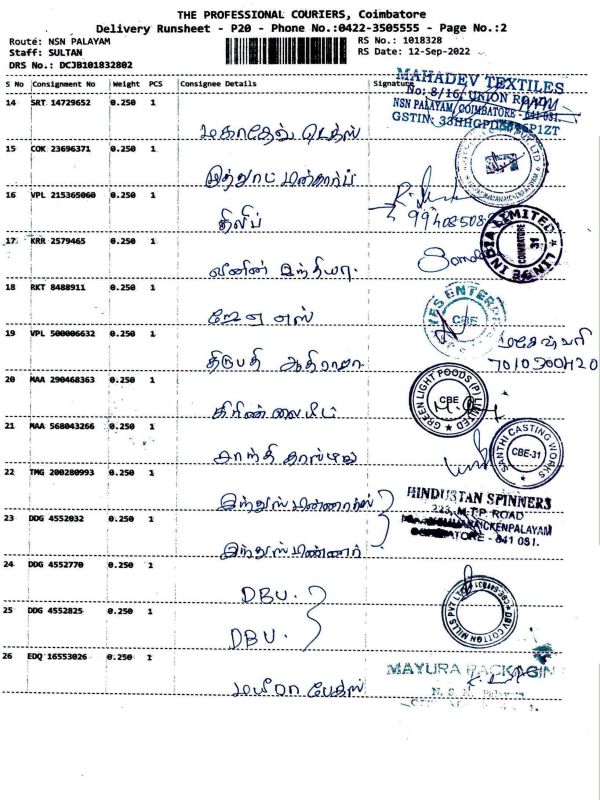 THE PROFESSIONAL COURIERS, Coimbatore
Delivery Runsheet - P20 - Phone No.:0422-3505555 - Page No.:2
Route: NSN PALAYAM
Staff: SULTAN
DRS No.: DCJB101832802
RS No.: 1018328
RS Date: 12-Sep-2022
S No Consignment No Weight PCS Consignee Details Signature
MAHADEV TEXTILES
No: 8/16, UNION ROAD
NSN PALAYAM, COIMBATORE - 641 031.
GSTIN: 33HHGPD
14 SRT 14729652 0.250 1
மகாதேவ் டெக்ஸ்
15 COK 23696371 0.250 1
16 VPL 215365060 0.250 1
திலிப்
99408508
17 KRR 2579465 0.250 1
லினின் இந்தியா
LINDE INDIA LIMITED
COIMBATORE
31
18 RKT 8488911 0.250 1
ஜே ஏ எஸ்
ENTER
CBE
19 VPL 500006632 0.250 1
திருபதி ஆதிராஜா
மகேஷ்வரி
7010300420
20 MAA 290468363 0.250 1
கிரீண் லைட்
GREEN LIGHT FOODS (P) LIMITED
CBE
21 MAA 568043266 0.250 1
சாந்தி காஸ்டிங்
SANTHI CASTING WORKS
CBE-31
22 TMG 200280993 0.250 1
HINDUSTAN SPINNERS
223, M.T.P. ROAD
NAICKENPALAYAM
COIMBATORE - 641 031.
23 DDG 4552032 0.250 1
24 DDG 4552770 0.250 1
DBV.
25 DDG 4552825 0.250 1
DBV.
DBV COTTON MILLS PVT LTD
26 EDQ 16553026 0.250 1
மயூரா பேக்ஸ்
MAYURA PACKAGIN